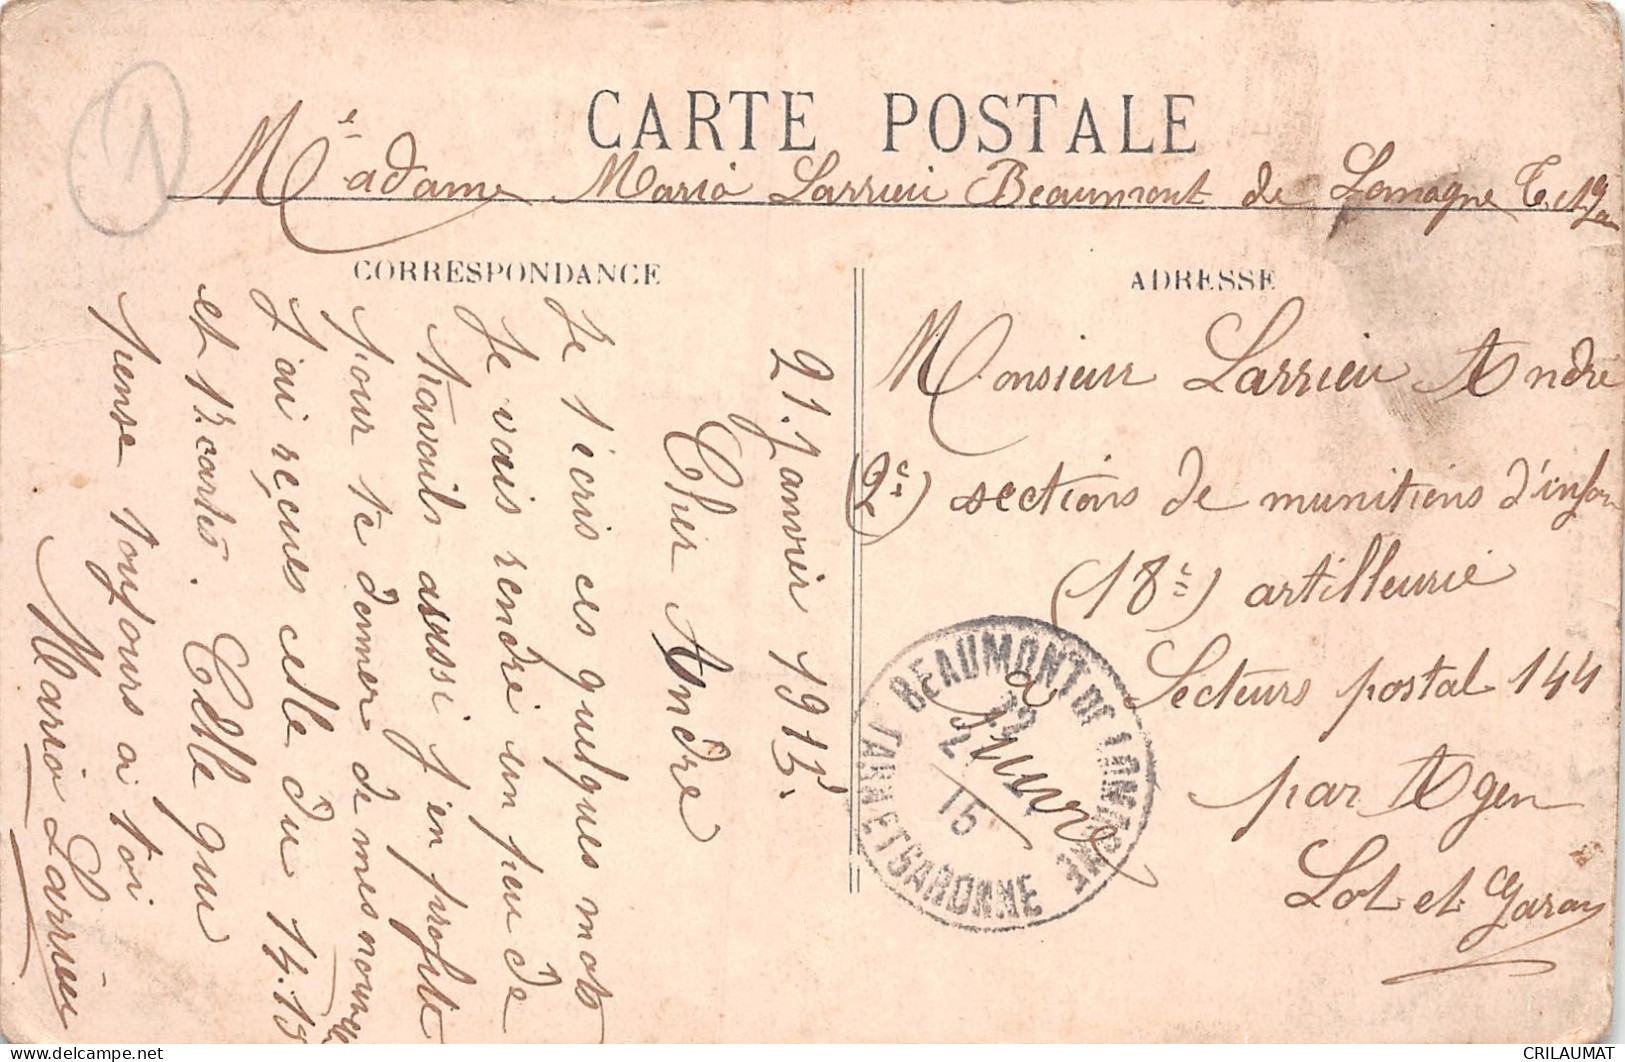 1
CARTE POSTALE
Madame Maria Larrieu Beaumont de Lomagne T. et G.
CORRESPONDANCE
ADRESSE
21 Janvier 1915.
Cher André
Je t'ecris ces quelques mots
Je vais rendre un peu de
travail aussi j'en profite
pour te donner de mes nouvelles
J'ai reçues celle du 14. 15
et 17. cartes. Celle qui
pense toujours a toi
Maria Larrieu
Monsieur Larrieu André
(2e) sections de munitions d'infan
(18e) artillerie
Secteurs postal 144
a suivre
par Agen
Lot et Garon
BEAUMONT DE LOMAGNE
22
15
TARN ET GARONNE
CRILAUMAT